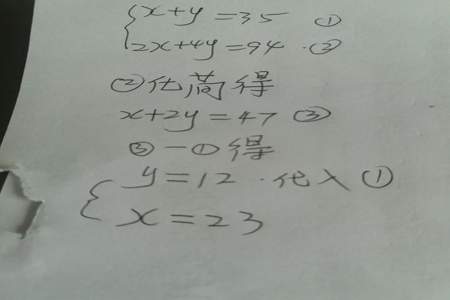 {x+y=35 ①
2x+4y=94 ·②
②化简得
x+2y=47 ③
③-①得
{y=12·代入①
x=23